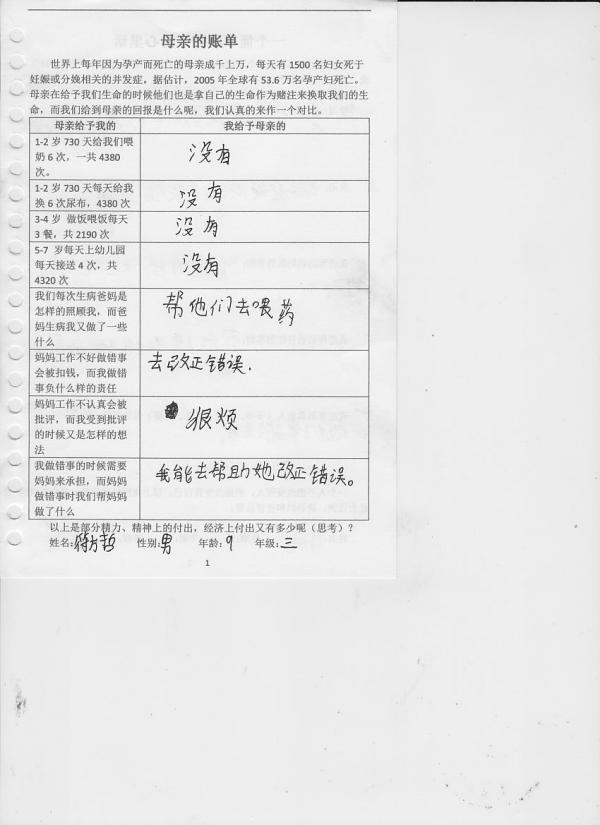 母亲的账单
世界上每年因为孕产而死亡的母亲成千上万，每天有 1500 名妇女死于
妊娠或分娩相关的并发症。据估计，2005 年全球有 53.6 万名孕产妇死亡。
母亲在给予我们生命的时候他们也是拿自己的生命作为赌注来换取我们的生
命，而我们给到母亲的回报是什么呢，我们认真的来作一个对比。
母亲给予我的
我给予母亲的
1-2 岁 730 天给我们喂
奶 6 次，一共 4380
次。
没有
1-2 岁 730 天每天给我
换 6 次尿布，4380 次
没有
3-4 岁 做饭喂饭每天
3 餐，共 2190 次
没有
5-7 岁每天上幼儿园
每天接送 4 次，共
4320 次
没有
我们每次生病爸妈是
怎样的照顾我，而爸
妈生病我又做了一些
什么
帮他们去喂药
妈妈工作不好做错事
会被扣钱，而我做错
事负什么样的责任
去改正错误.
妈妈工作不认真会被
批评，而我受到批评
的时候又是怎样的想
法
很烦
我做错事的时候需要
妈妈来承担，而妈妈
做错事时我们帮妈妈
做了什么
我能去帮助她改正错误。
以上是部分精力、精神上的付出，经济上付出又有多少呢（思考）？
姓名: 性别:男 年龄:9 年级:三
1